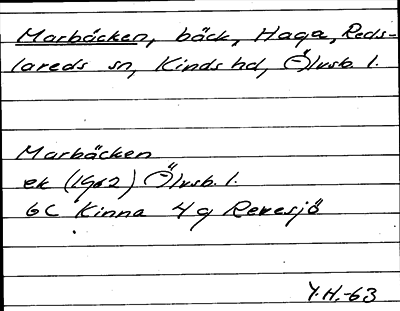 Marbäcken, bäck, Haga, Reds-
lareds sn, Kinds hd, Älvsb. l.
Marbäcken
ek (1962) Älvsb. l.
6C Kinna 4g Revesjö
Y.H.-63